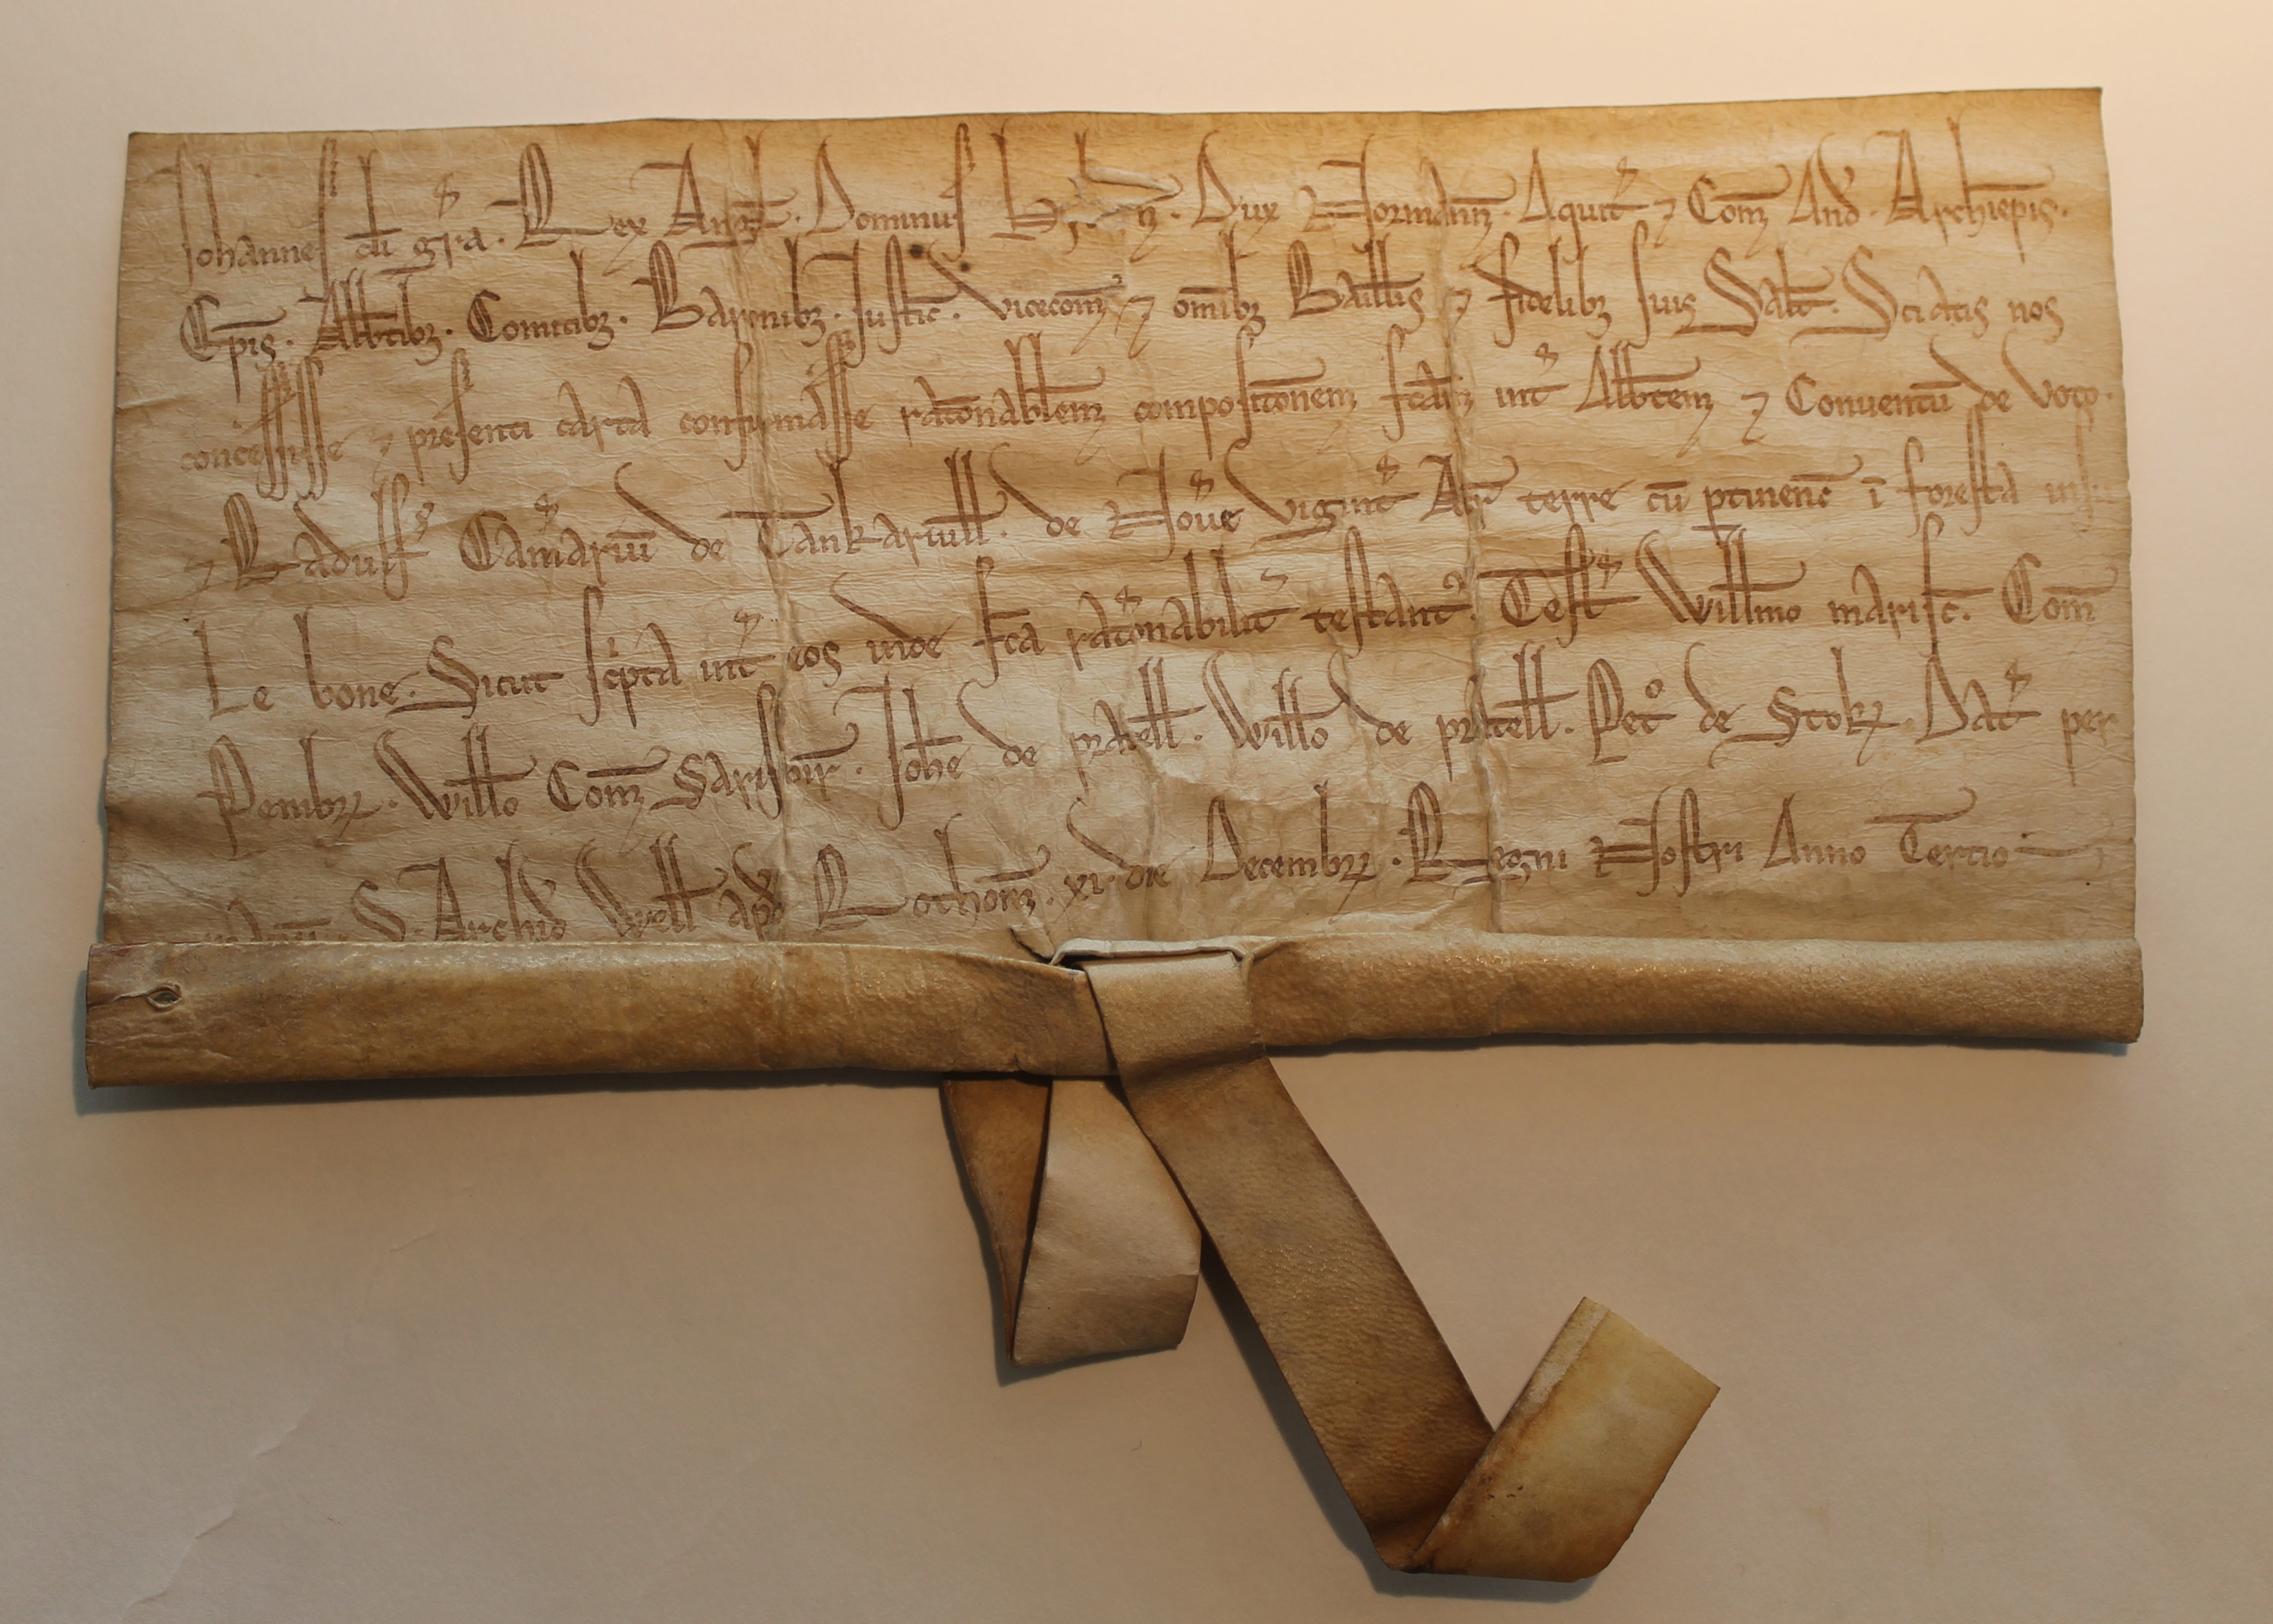 Johannes di gra. Rex Angł. Dominus hybn̄. Dux Normann̄. Aquit̄ ⁊ Com̄ And. Archiepis.
Epis. Abbtibȝ. Comitibȝ. Baronibȝ. Justic̄. vicecom̄ ⁊ omibȝ Baillis ⁊ fidelibȝ suis Salt̄. Sciatis nos
concessisse ⁊ presenti carta confirmasse rat̄onabłem compositōnem fc̄am int̄ Abbtem ⁊ Conuentū de Voto.
⁊ Radulf̄ Cam̄ariū de Tankaruill. de Nou̅e vigint̄ Acr̄ terre cū ptinenc̄ ī foresta
Le bone. Sicut sc̍pta int̄ eos inde fc̄a rat̄onabilit̄ testant᷑. Test̄ Willmo marisc̄. Com̄
Pembrꝝ. Willo Com̄ Sarisbir̄. Joh̄e de pratell. Willo de pratell. Pet̊ de Stokꝝ. Dat̄ per
manū. S. Archid̄ Well ap̄d Rothom̄. xi. die Decembrꝝ. Regni Nostri Anno Tertio